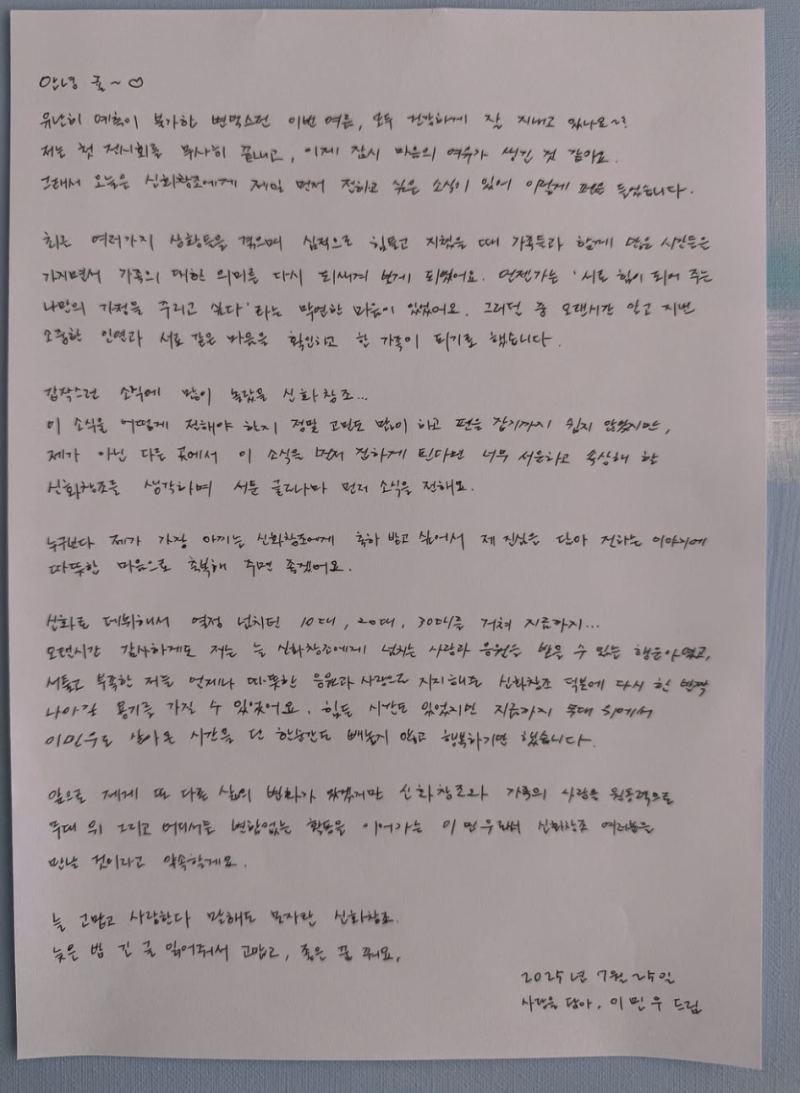 안녕 귤~♡
유난히 예측이 불가한 변덕스런 이번 여름, 모두 건강하게 잘 지내고 있나요~?
저는 첫 전시회를 무사히 끝내고, 이제 잠시 마음의 여유가 생긴 것 같아요.
그래서 오늘은 신화창조에게 제일 먼저 전하고 싶은 소식이 있어 이렇게 펜을 들었습니다.
최근 여러가지 상황들을 겪으며 심적으로 힘들고 지쳤을 때 가족들과 함께 많은 시간들은
가지면서 가족의 대한 의미를 다시 되새겨 보게 되었어요. 언젠가는 '서로 힘이 되어 주는
나만의 가정을 꾸리고 싶다'라는 막연한 마음이 있었어요. 그러던 중 오랜시간 알고 지낸
소중한 인연과 서로 같은 마음을 확인하고 한 가족이 되기로 했습니다.
갑작스런 소식에 많이 놀랐을 신화창조...
이 소식을 어떻게 전해야 하지 정말 고민도 많이 하고 펜을 잡기까지 쉽지 않았지만,
제가 아닌 다른 곳에서 이 소식을 먼저 접하게 된다면 너무 서운하고 속상해 할
신화창조를 생각하며 서툰 글이나마 먼저 소식을 전해요.
누구보다 제가 가장 아끼는 신화창조에게 축하 받고 싶어서 제 진심을 담아 전하는 이야기에
따뜻한 마음으로 축복해 주면 좋겠어요.
신화로 데뷔해서 열정 넘치던 10대, 20대, 30대를 거쳐 지금까지...
오랜시간 감사하게도 저는 늘 신화창조에게 넘치는 사랑과 응원을 받을 수 있는 행운아였고,
서툴고 부족한 저를 언제나 따뜻한 응원과 사랑으로 지지해준 신화창조 덕분에 다시 한 번 더
나아갈 용기를 가질 수 있었어요. 힘든 시간도 있었지만 지금까지 무대 위에서
이민우로 살아온 시간을 단 한순간도 빼놓지 않고 행복하기만 했습니다.
앞으로 제게 또 다른 삶의 변화가 있겠지만 신화창조와 가족의 사랑을 원동력으로
무대 위 그리고 어디서든 변함없는 활동을 이어가는 이민우로써 신화창조 여러분을
만날 것이라고 약속할게요.
늘 고맙고 사랑한다 말해도 모자란 신화창조.
늦은 밤 긴 글 읽어줘서 고맙고, 좋은 꿈 꿔요,
2025년 7월 25일
사랑을 담아, 이민우 드림